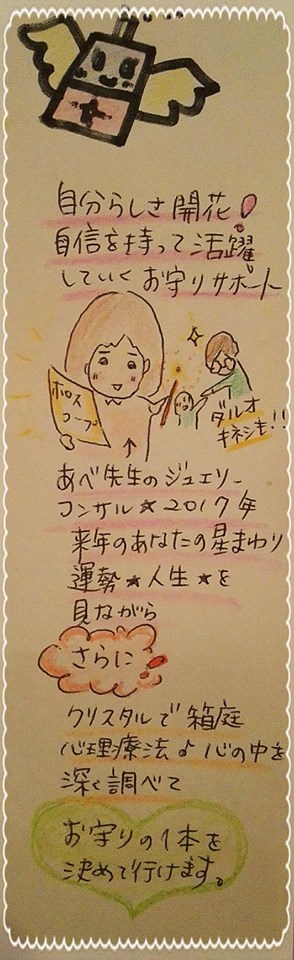 自分らしさ開花!
自信を持って活躍
していくお守りサポート
ホロス
コープ
ダルオ
キネシも!!
↑
あべ先生のジュエリー
コンサル★2017年
来年のあなたの星まわり
運勢★人生★を
見ながら
さらに!
クリスタルで箱庭
心理療法♪心の中を
深く調べて
お守りの1本を
決めて行けます。